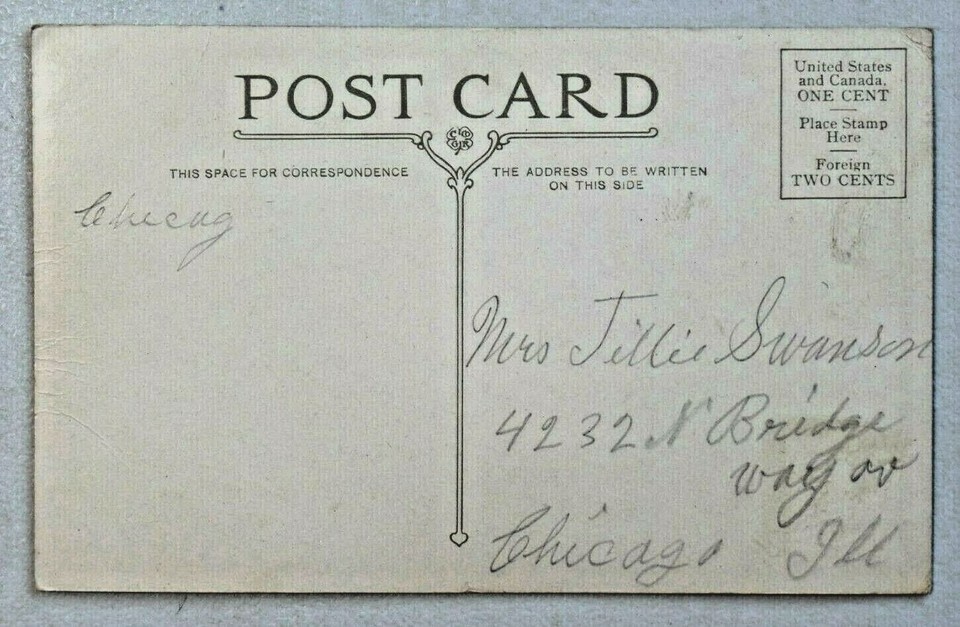 POST CARD
United States
and Canada,
ONE CENT
Place Stamp
Here
Foreign
TWO CENTS
THIS SPACE FOR CORRESPONDENCE
THE ADDRESS TO BE WRITTEN
ON THIS SIDE
Chicag
Mrs Tillie Swanson
4232 N Bridge
way av
Chicago Ill